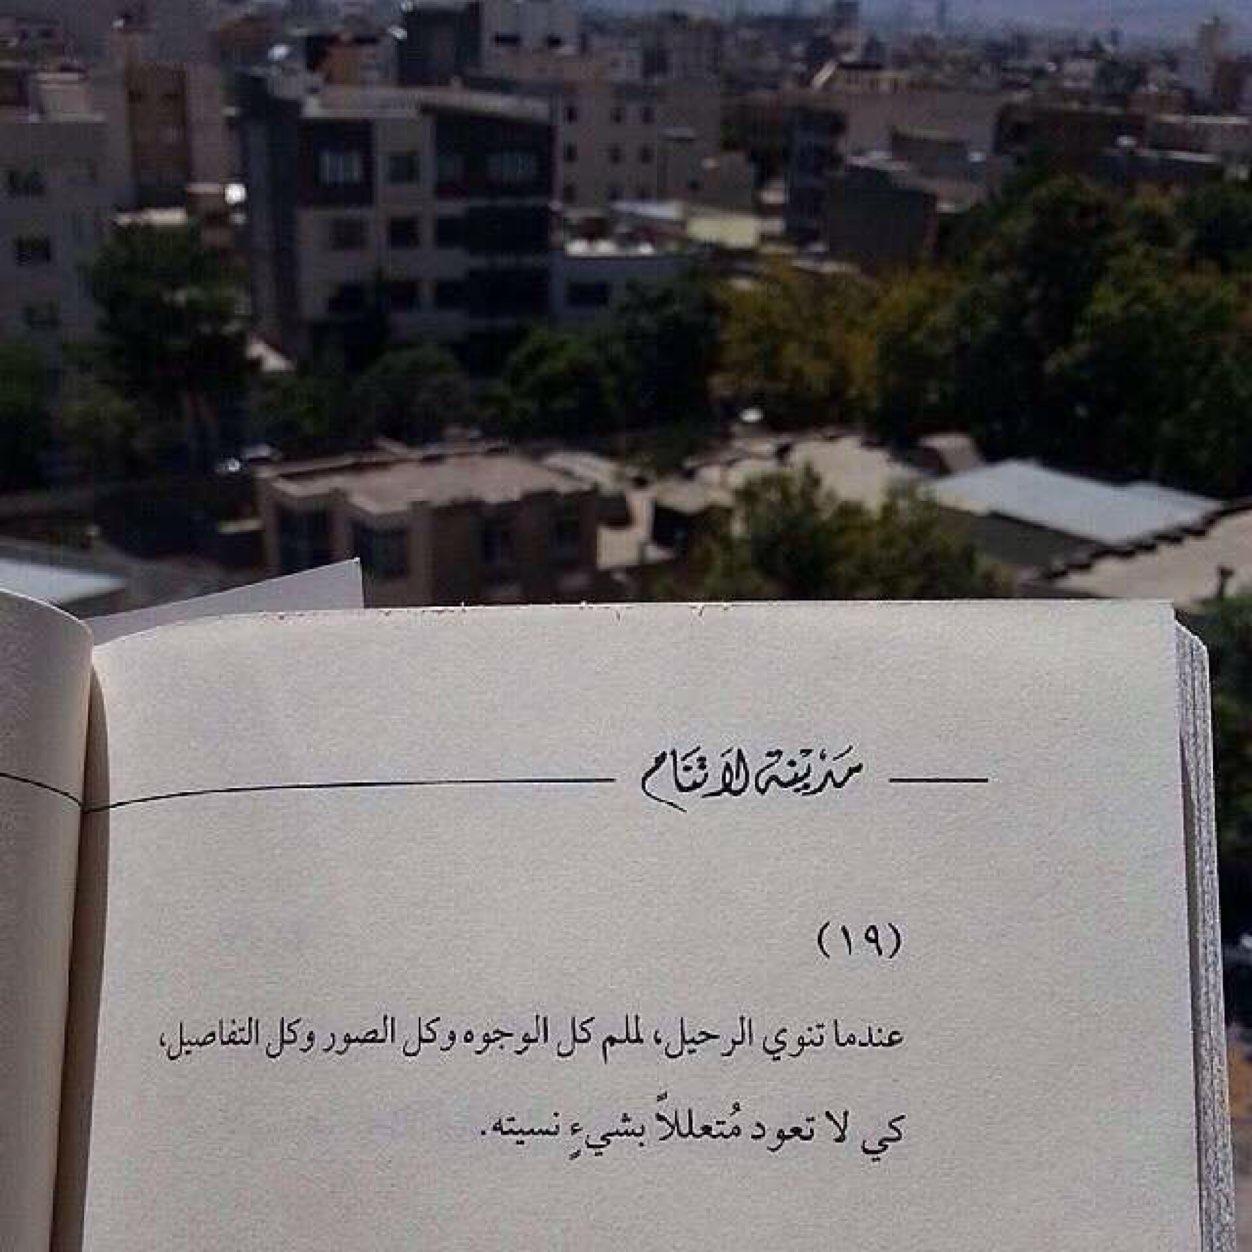 مَدِيْنَة لَا تَنَام
(١٩)
عندما تنوي الرحيل، لملم كل الوجوه وكل الصور وكل التفاصيل،
كي لا تعود مُتعللاً بشيءٍ نسيته.